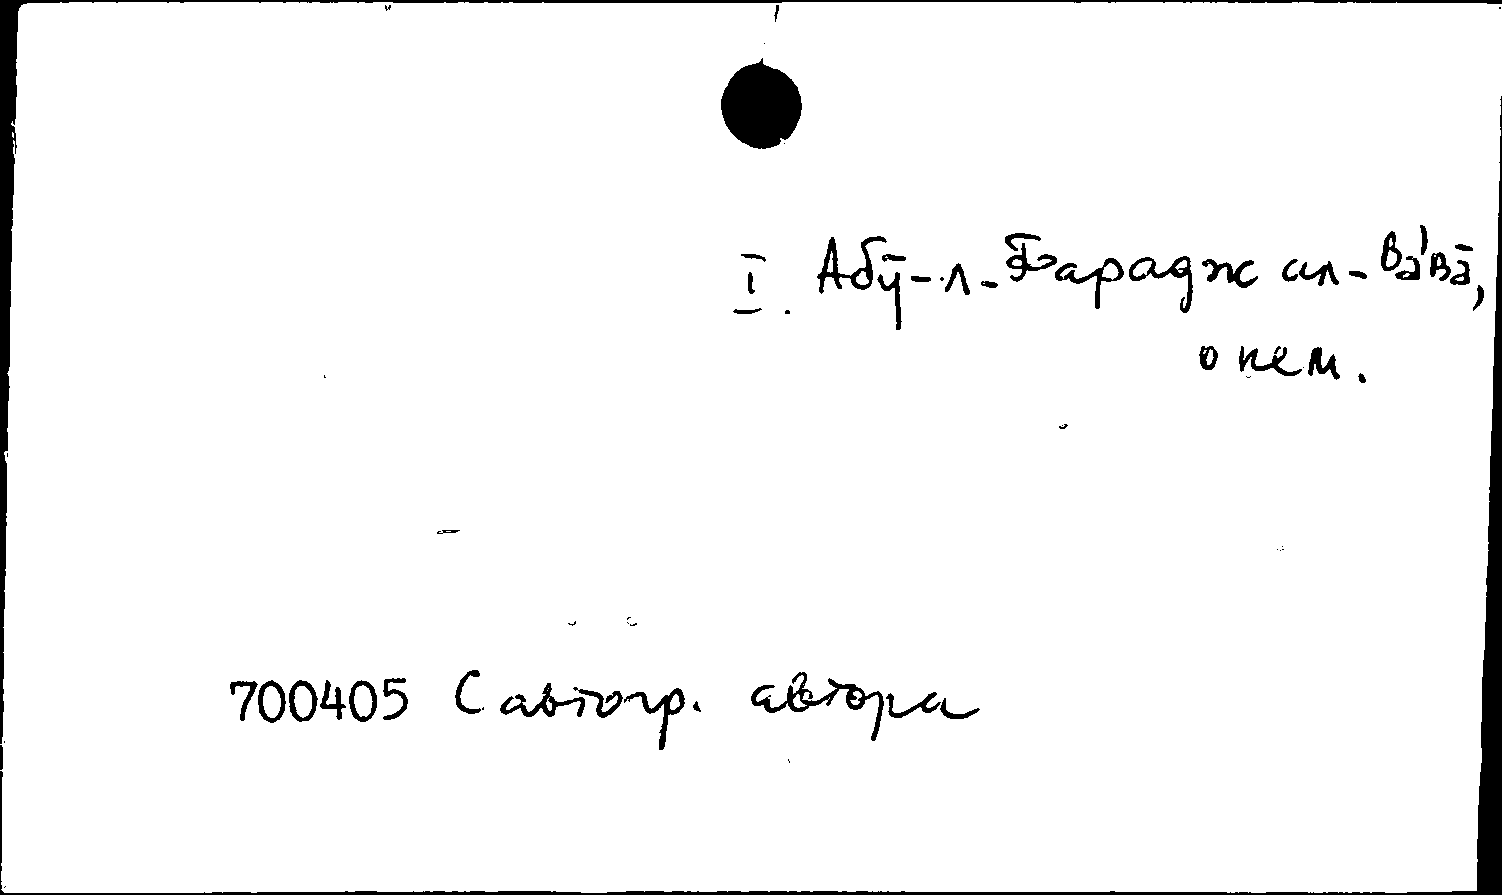 I. Абӯ-л-Фарадж ал-Ва'ва̄,
о нем.
700405 С автогр. автора